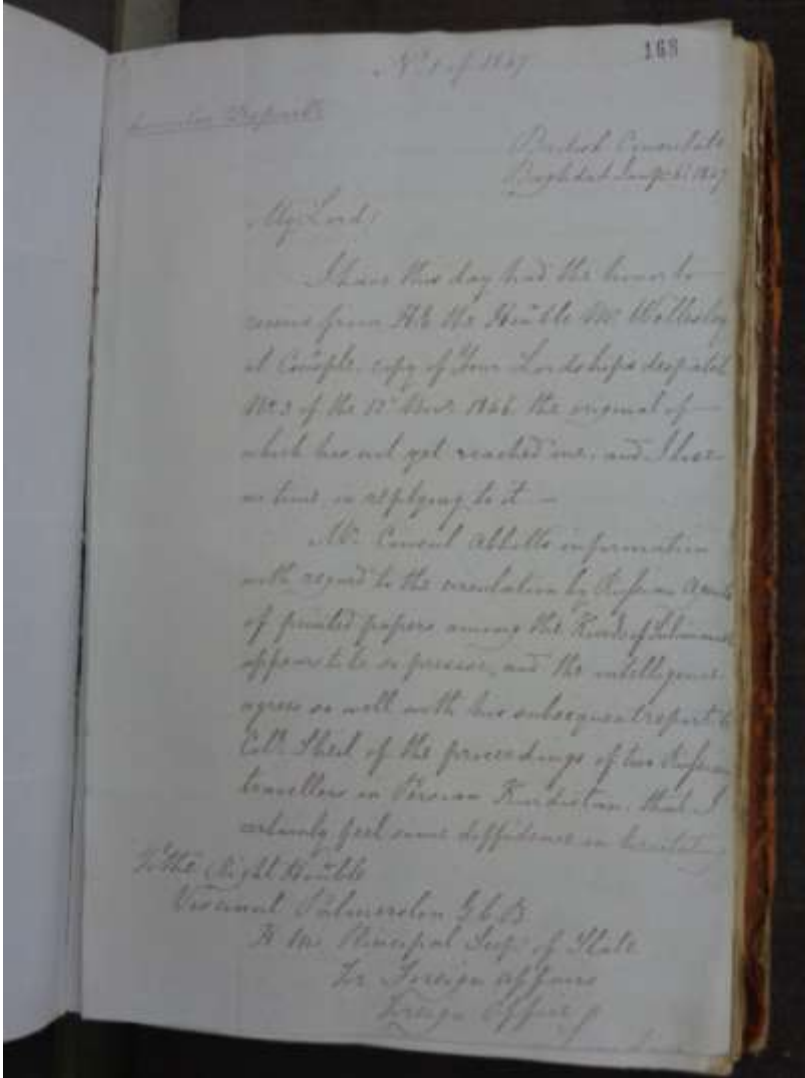 168
No. 1 of 1847
British Consulate
Baghdad 1847
My Lord,
I have this day had the honor to
receive from H.E. the Honble Mr. Wellesley
at Cousple. copy of Your Lordships despatch
No. 3 of the 12th Novr. 1846 the original of
which has not yet reached me, and I lose
no time in replying to it —
Mr. Consul Abbotts information
with regard to the circulation by Russian Agents
of printed papers among the Kurds of
appears to be so precise, and the intelligence
agrees so well with his subsequent report to
Coll. Sheil of the proceedings of two Russian
travellers in Persian Kurdistan, that I
certainly feel some diffidence in hesitating
To the Right Honble
Viscount Palmerston G.C.B.
H. M. Principal Secy. of State
For Foreign Affairs
Foreign Office